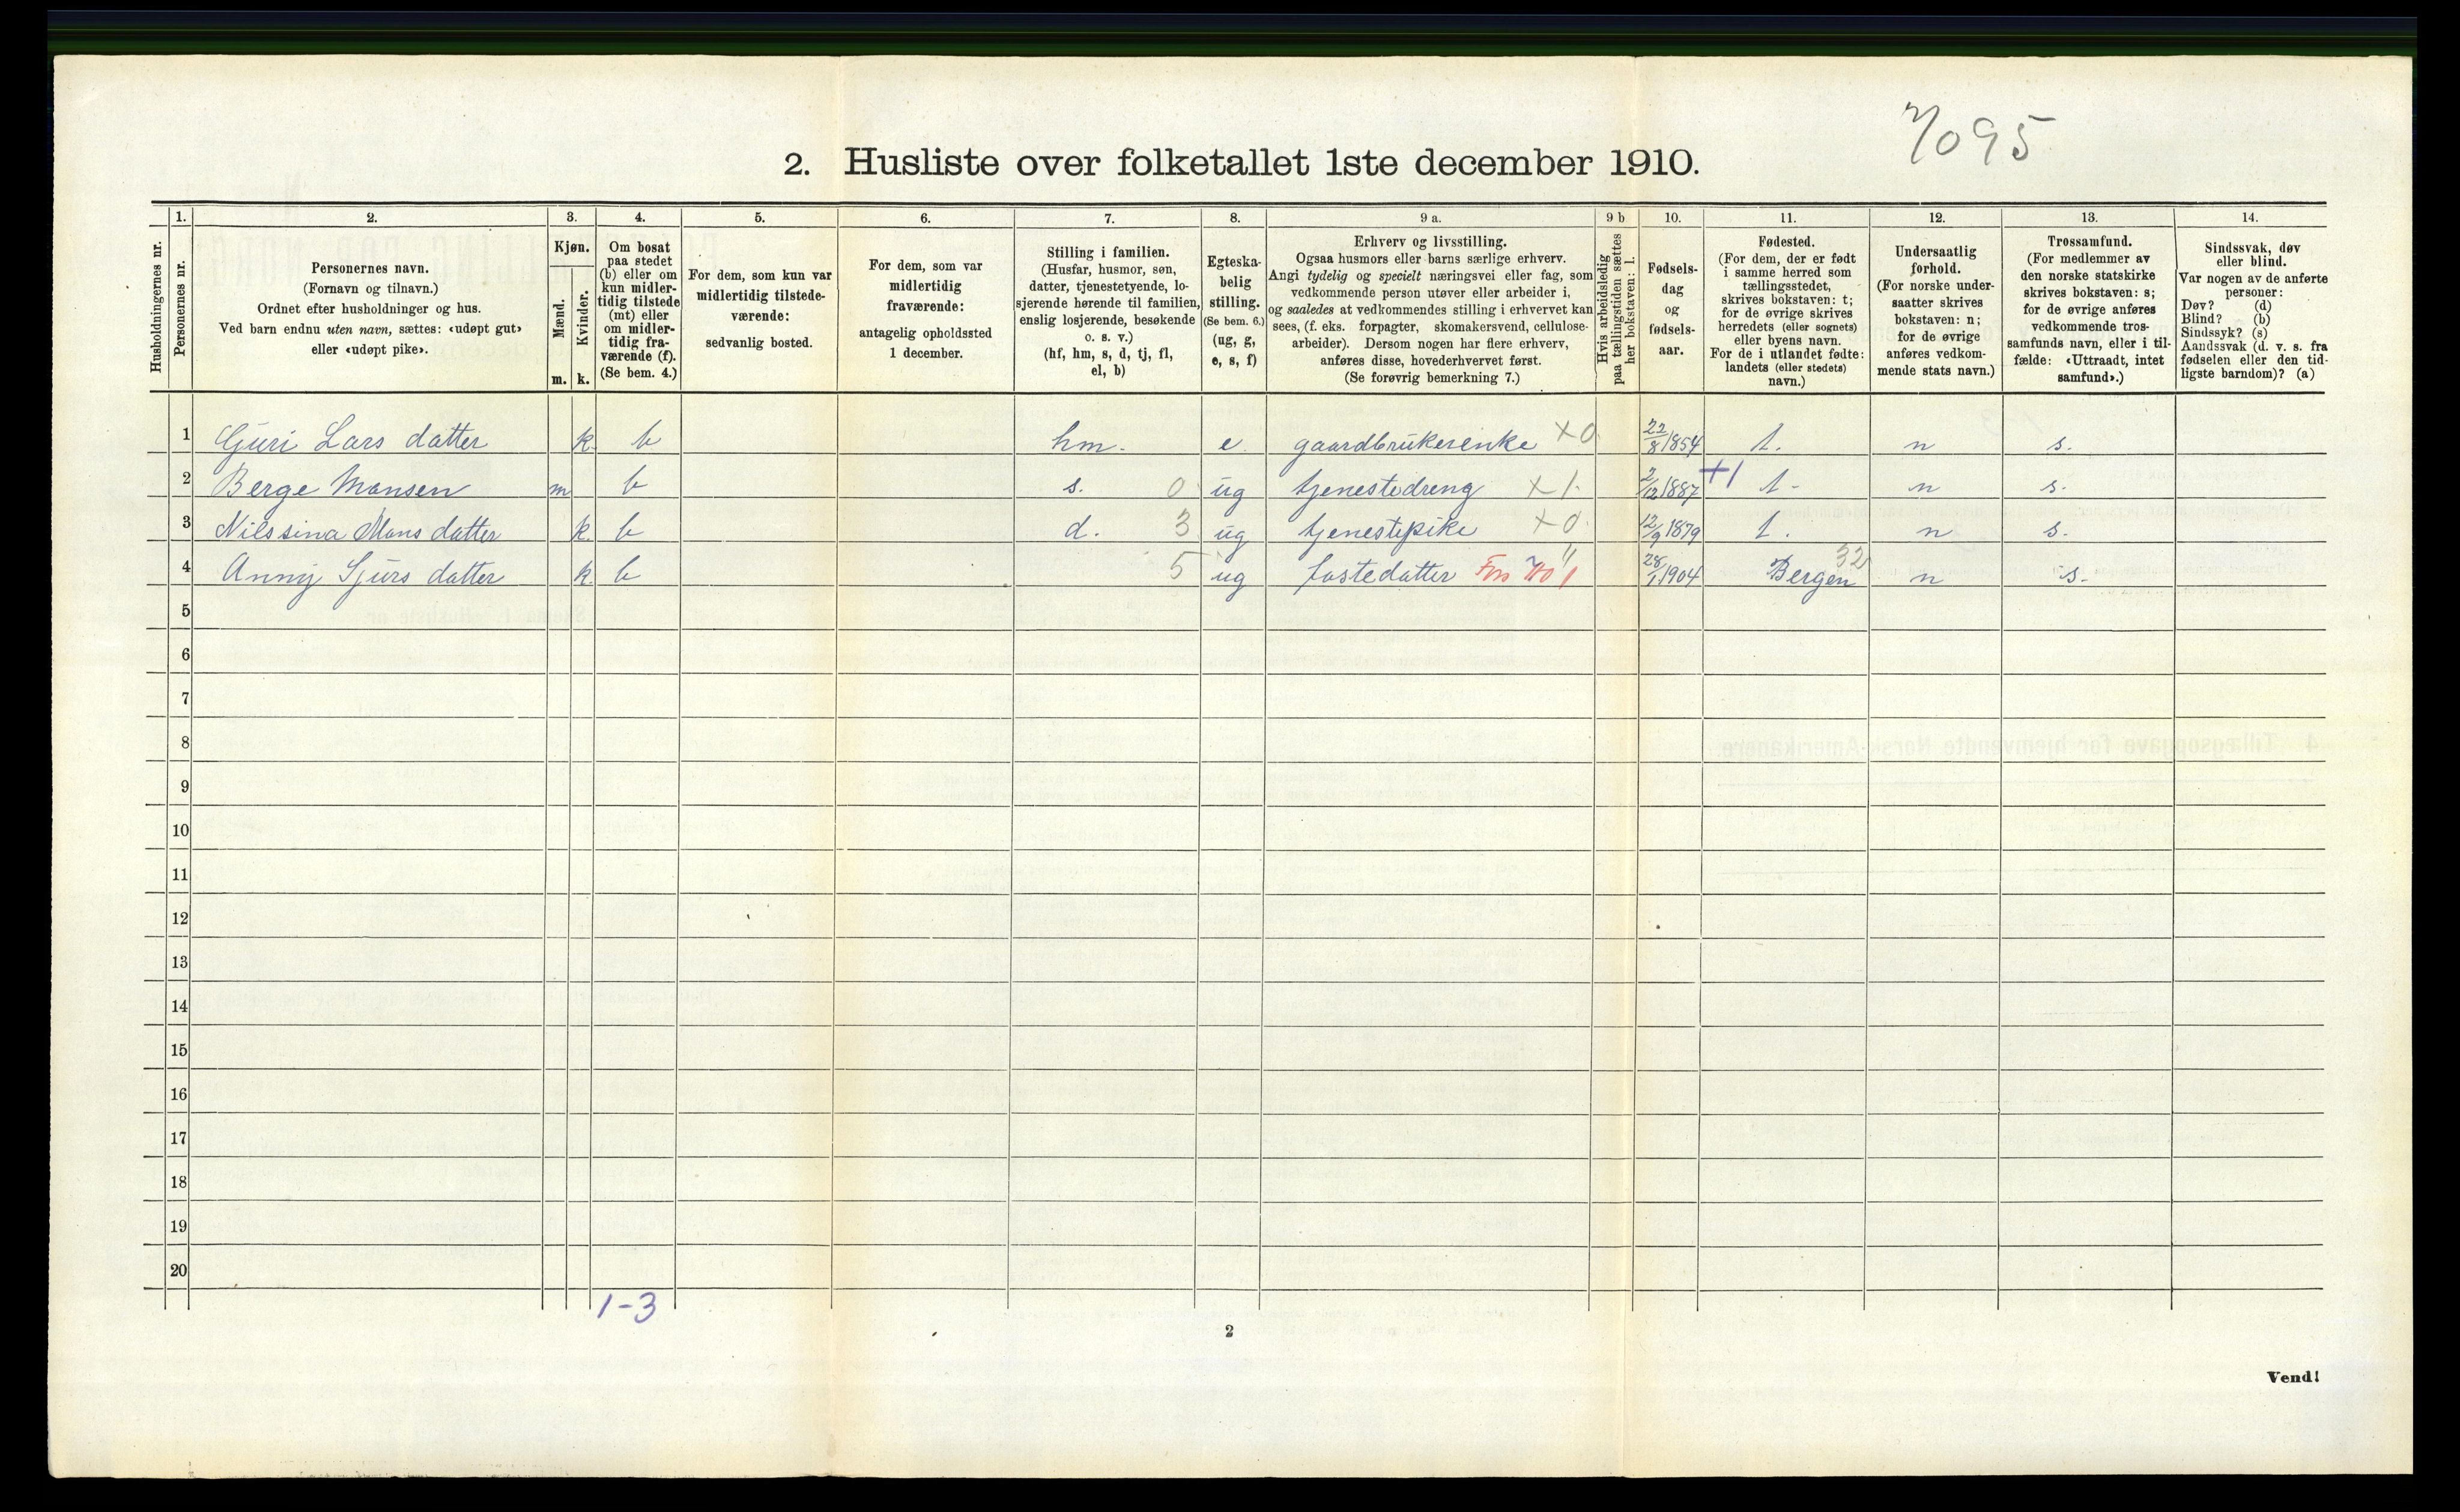 7095
2. Husliste over folketallet 1ste december 1910.
Husholdningernes nr.
1. Personernes nr.
2. Personernes navn.
(Fornavn og tilnavn.)
Ordnet efter husholdninger og hus.
Ved barn endnu uten navn, sættes: «udøpt gut»
eller «udøpt pike».
3. Kjøn.
Mænd. Kvinder.
m. k.
4. Om bosat
paa stedet
(b) eller om
kun midler-
tidig tilstede
(mt) eller
om midler-
tidig fra-
værende (f).
(Se bem. 4.)
5. For dem, som kun var
midlertidig tilstede-
værende:
sedvanlig bosted.
6. For dem, som var
midlertidig
fraværende:
antagelig opholdssted
1 december.
7. Stilling i familien.
(Husfar, husmor, søn,
datter, tjenestetyende, lo-
sjerende hørende til familien,
enslig losjerende, besøkende
o. s. v.)
(hf, hm, s, d, tj, fl,
el, b)
8. Egteska-
belig
stilling.
(Se bem. 6.)
(ug, g,
e, s, f)
9 a. Erhverv og livsstilling.
Ogsaa husmors eller barns særlige erhverv.
Angi tydelig og specielt næringsvei eller fag, som
vedkommende person utøver eller arbeider i,
og saaledes at vedkommendes stilling i erhvervet kan
sees, (f. eks. forpagter, skomakersvend, cellulose-
arbeider). Dersom nogen har flere erhverv,
anføres disse, hovederhvervet først.
(Se forøvrig bemerkning 7.)
9 b Hvis arbeidsledig
paa tællingstiden sættes
her bokstaven: l.
10. Fødsels-
dag
og
fødsels-
aar.
11. Fødested.
(For dem, der er født
i samme herred som
tællingsstedet,
skrives bokstaven: t;
for de øvrige skrives
herredets (eller sognets)
eller byens navn.
For de i utlandet fødte:
landets (eller stedets)
navn.)
12. Undersaatlig
forhold.
(For norske under-
saatter skrives
bokstaven: n;
for de øvrige
anføres vedkom-
mende stats navn.)
13. Trossamfund.
(For medlemmer av
den norske statskirke
skrives bokstaven: s;
for de øvrige anføres
vedkommende tros-
samfunds navn, eller i til-
fælde: «Uttraadt, intet
samfund».)
14. Sindssvak, døv
eller blind.
Var nogen av de anførte
personer:
Døv? (d)
Blind? (b)
Sindssyk? (s)
Aandssvak (d. v. s. fra
fødselen eller den tid-
ligste barndom)? (a)
1 Guri Lars datter k. b hm. e gaardbrukerenke X 0 22/8 1854 t. n s.
2 Berge Monsen m b s. 0 ug tjenestedreng X 1. 2/12 1887 +1 t- n s.
3 Nilssina Mons datter k. b d. 3 ug tjenestepike X 0 12/9 1879 t. n s.
4 Anny Sjurs datter k. b 5 ug fostedatter 28/1 1904 Bergen 32 n s.
5
6
7
8
9
10
11
12
13
14
15
16
17
18
19
20
1-3
2
Vend!